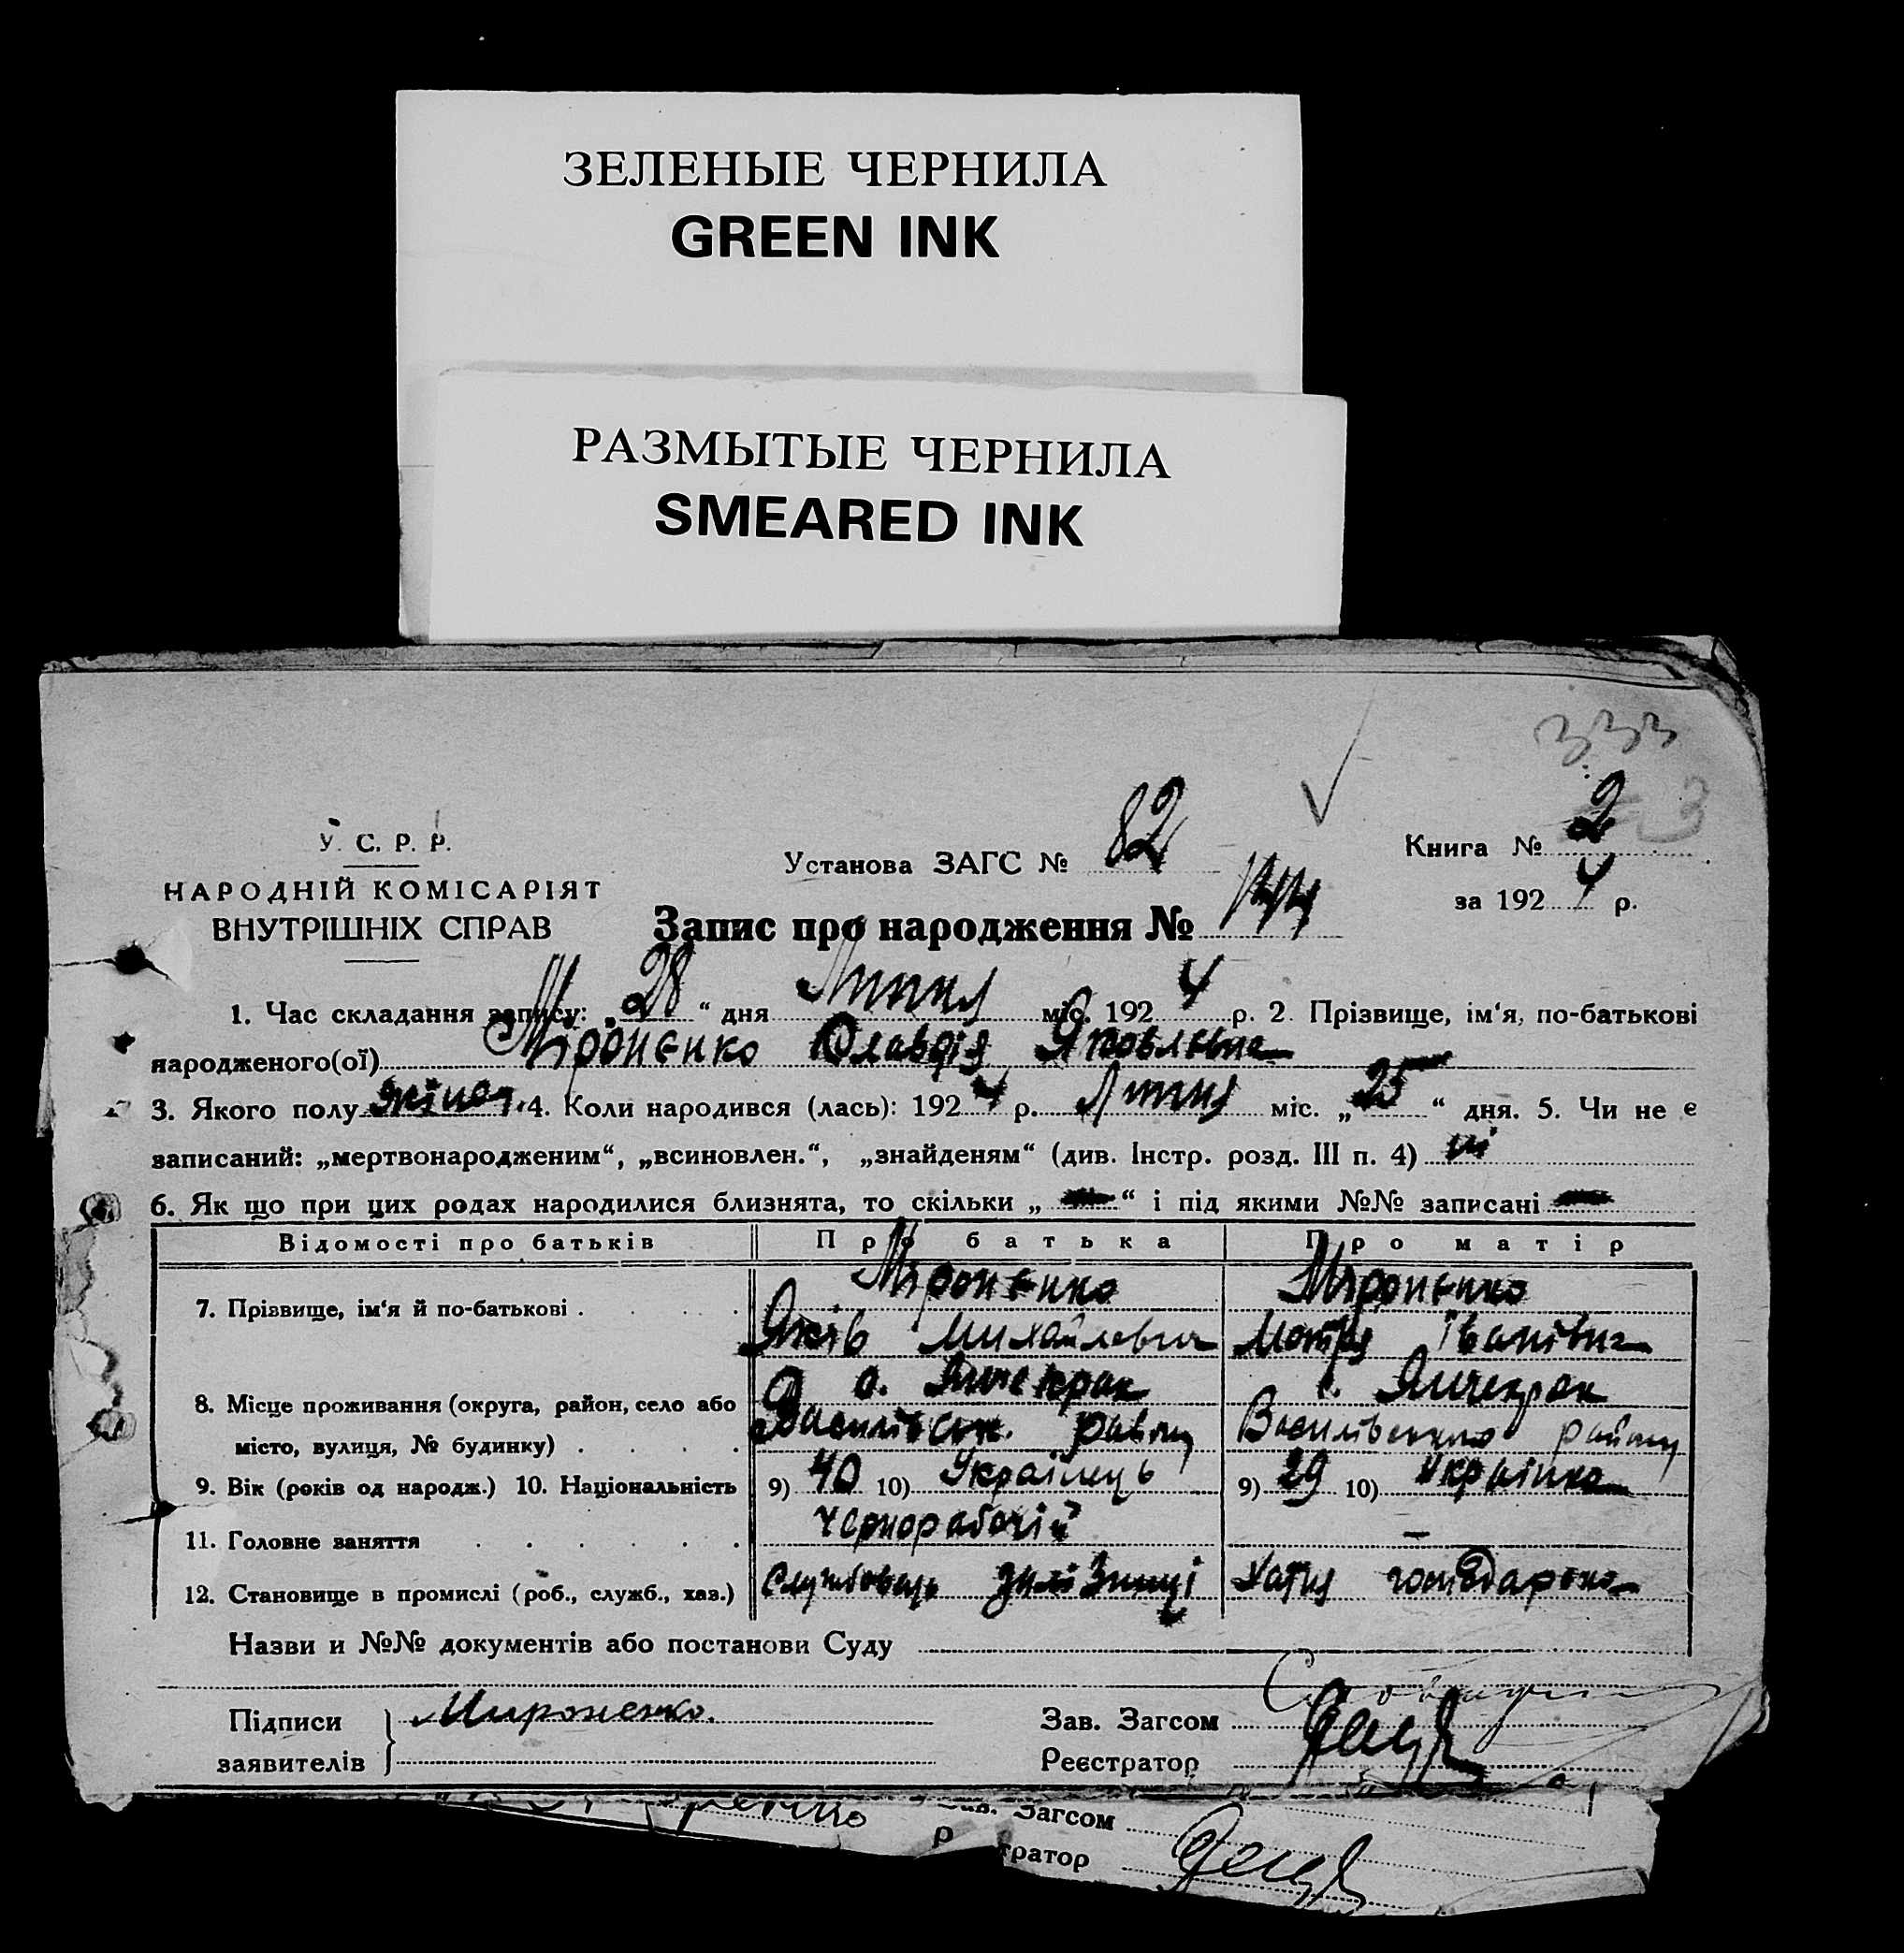 ЗЕЛЕНЫЕ ЧЕРНИЛА
GREEN INK
РАЗМЫТЫЕ ЧЕРНИЛА
SMEARED INK
333
3
У. С. Р. Р.
НАРОДНІЙ КОМІСАРІЯТ
ВНУТРІШНІХ СПРАВ
Установа ЗАГС № 82
Книга № 2
за 1924 р.
Запис про народження № 144
1. Час складання запису: „28“ дня Липня міс. 1924 р. 2. Прізвище, ім‘я, по-батькові
народженого(ої) Міроненко Клавдія Яковлевна
3. Якого полу жіноч. 4. Коли народився (лась): 1924 р. Липня міс. „25“ дня. 5. Чи не є
записаний: „мертвонародженим“, „всиновлен.“, „знайденям“ (див. Інстр. розд. III п. 4) ні
6. Як що при цих родах народилися близнята, то скільки „ “ і під якими №№ записані
Відомості про батьків Про батька Про матір
7. Прізвище, ім‘я й по-батькові Міроненко Міроненко
Яків Михайлович Мотря Іванівна
8. Місце проживання (округа, район, село або с. Янчекрак с. Янчекрак
місто, вулиця, № будинку) Василівськ. район Василівського району
9. Вік (років од народж.) 10. Національність 9) 40 10) Українець 9) 29 10) Українка
11. Головне заняття Чернорабочій —
12. Становище в промислі (роб., служб., хаз.) Службовець залізниці Хатня господарка
Назви и №№ документів або постанови Суду
Підписи Мироненко. Зав. Загсом
заявителів Реєстратор
Загсом
тратор